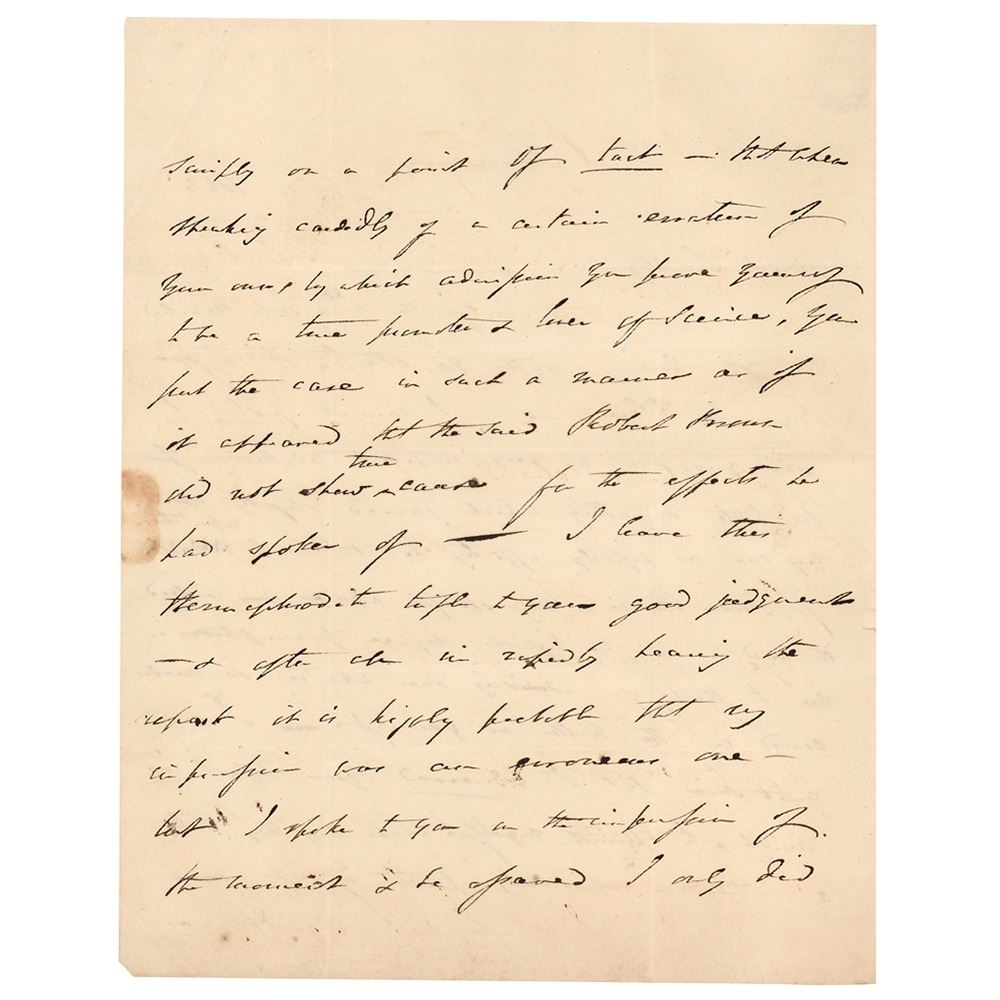 simply on a point of tact — that when
speaking candidly of a certain erratum of
your own, by which admission you prove yourself
to be a true promoter & lover of Science, you
put the case in such a manner as if
it appeared that the said Robert Brown
did not show true cause for the effects he
had spoken of — I leave this
Hermaphrodite to your good judgment
— & after all in rapidly hearing the
report it is highly probable that my
impression was an erroneous one —
but I spoke to you on the impression of
the moment & be assured I only did